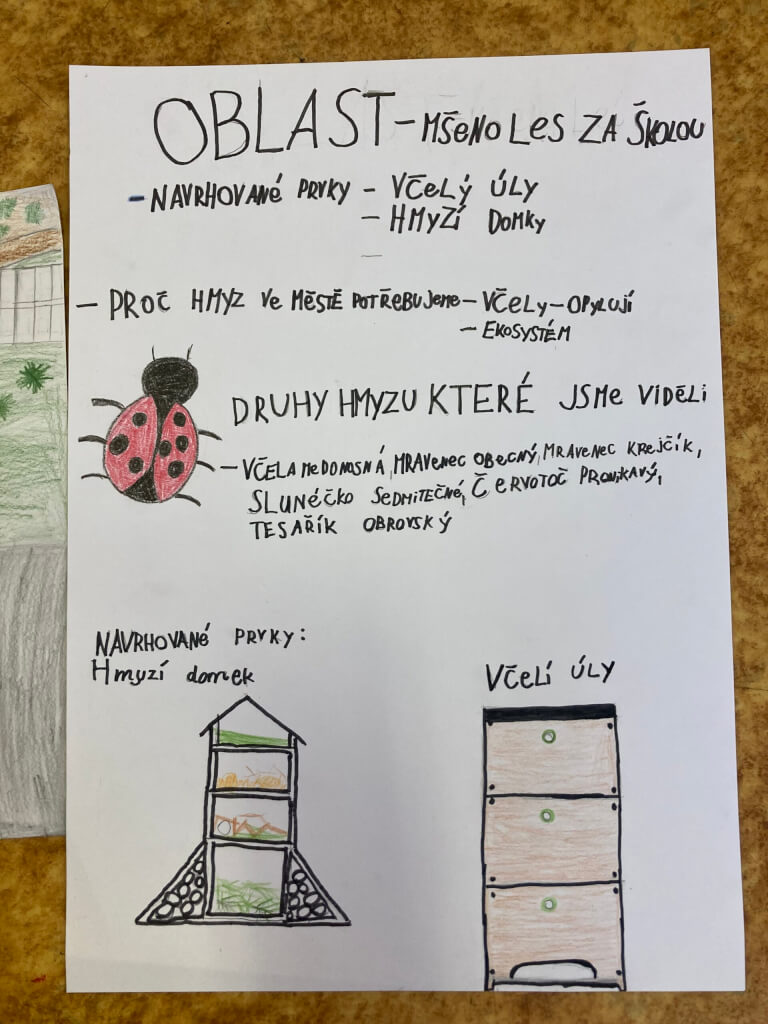 OBLAST - MŠENO LES ZA ŠKOLOU
- NAVRHOVANÉ PRVKY - VČELÝ ÚLY
- HMYZÍ DOMKY
- PROČ HMYZ VE MĚSTĚ POTŘEBUJEME - VČELY - OPYLUJÍ
- EKOSYSTÉM
DRUHY HMYZU KTERÉ JSME VIDĚLI
- VČELA MEDONOSNÁ, MRAVENEC OBECNÝ, MRAVENEC KREJČÍK,
SLUNÉČKO SEDMITEČNÉ, ČERVOTOČ PRONIKAVÝ,
TESAŘÍK OBROVSKÝ
NAVRHOVANÉ PRVKY:
Hmyzí domek
VČELÍ ÚLY